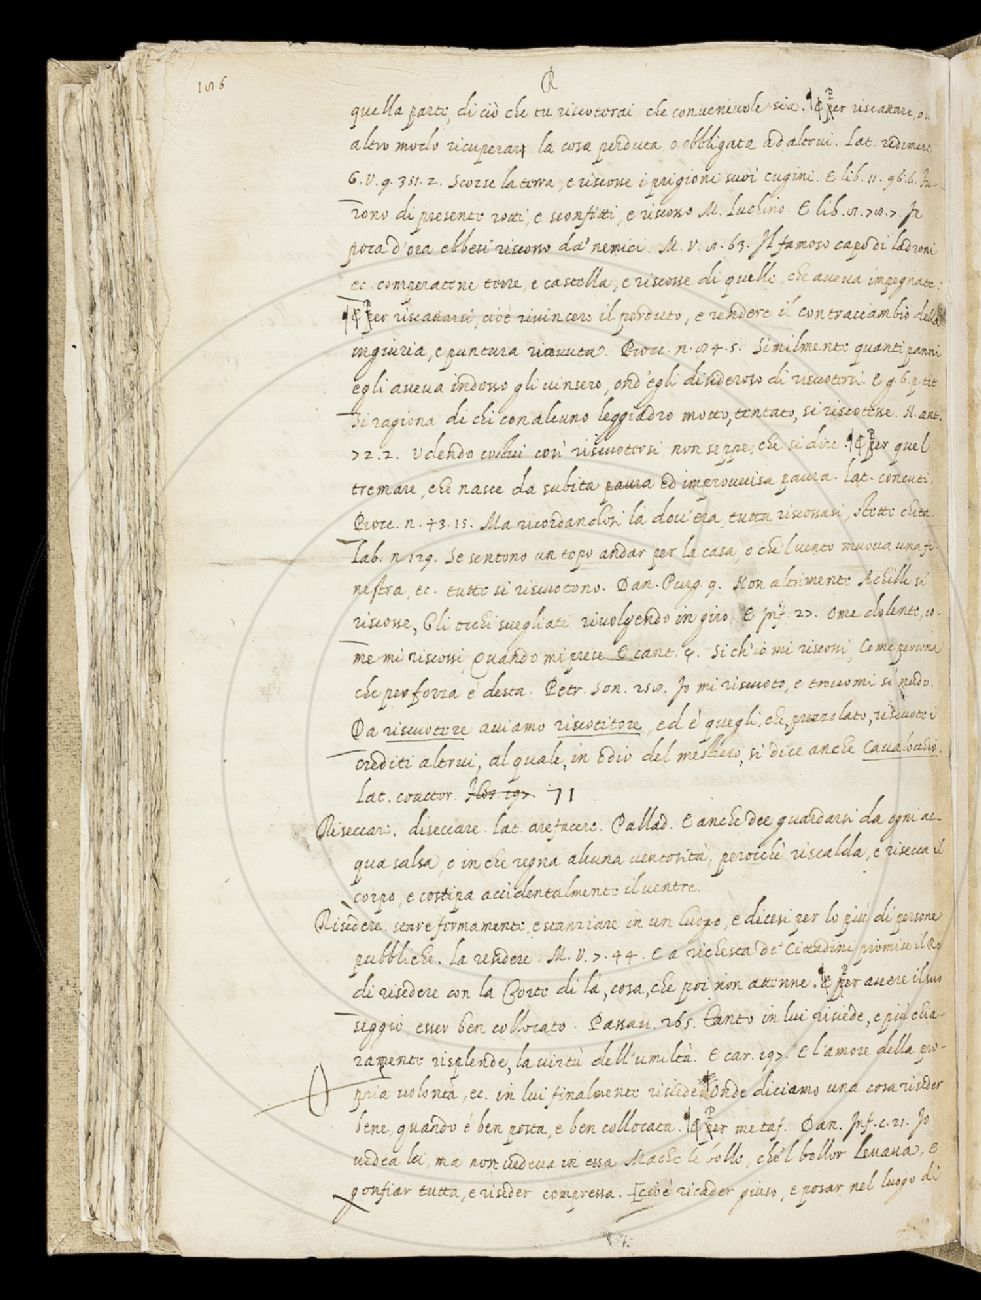 1516 R
quella parte, di ciò che tu riscoterai che convenevole sia. ¶ Per riscattare, o in
altro modo ricuperare la cosa perduta, o obbligata ad altrui. Lat. redimere.
G. V. 9. 351. 2. Scorse la terra, e riscosse i prigioni suoi cugini. E lib. 11. 96. 6. Fu-
rono di presente rotti, e sconfitti, e riscosso M. Luchino. E lib. In
poca d'ora ebbesi riscosso da' nemici. M. V. 63. Il famoso capo di ladroni
ec. comperatone terre, e castella, e riscosse di quelle, che aveva impegnate.
¶ Per riscattarsi, cioè rivincere il perduto, e rendere il contraccambio dell'
ingiuria, e puntura ricevuta. Bocc. n. 4. 5. Similmente quanti panni
egli aveva indosso gli vinsero, ond'egli disideroso di riscuotersi. E g. 6. p. tit.
Si ragiona di chi con alcuno leggiadro motto, tentato, si riscotesse. N. ant.
72. 2. Udendo costui così riscuotersi non seppe, che si dire. ¶ Per quel
tremare, che nasce da subita paura ed improvvisa paura. Lat. concuti.
Bocc. n. 43. 15. Ma ricordandosi là dov'era, tutta riscossasi, stette cheta.
Lab. n. 129. Se sentono un topo andar per la casa, o che'l vento muova una fi-
nestra, ec. tutte si riscuotono. Dan. Purg. 9. Non altrimente Achille si
riscosse, Gli occhi svegliati rivolgendo in giro. E Inf. 27. Ome dolente, co-
me mi riscossi, Quando mi prese. E cant. 4. Sì ch'io mi riscossi, Come persona
che per forza è desta. Petr. Son. Io mi riscuoto, e trovomi sì nudo.
Da riscuotere aviamo riscotitore, ed è quegli, che, prezzolato, riscuote i
crediti altrui, al quale, in odio del mestiero, si dice anche Cavalocchio.
Lat. coactor. 71
Riseccare. diseccare. lat. arefacere. Pallad. E anche dee guardarsi da ogni ac-
qua salsa, o in che regna alcuna ventosità, perocchè riscalda, e risecca il
corpo, e costipa accidentalmente il ventre.
Risedere, stare fermamente, e stanziare in un luogo, e dicesi per lo più di persone
pubbliche. La residere. M. V. 7. 44. E a richiesta de' Cittadini promise il Re
di risedere con la Corte di là, cosa, che poi non attenne. ¶ Per avere il suo
seggio, esser ben collocato. Passav. 265. Tanto in lui risiede, e più chia-
ramente risplende, la virtù dell'umiltà. E car. 197. E l'amore della pro-
pria volontà, ec. in lui finalmente risiede. Onde diciamo una cosa riseder
bene, quando è ben posta, e ben collocata. ¶ Per metaf. Dan. Inf. c. 21. Io
vedea lei, ma non vedeva in essa Mache le bolle, che'l bollor levava, E
gonfiar tutta, e riseder compressa. [cioè ricader giuso, e posar nel luogo di